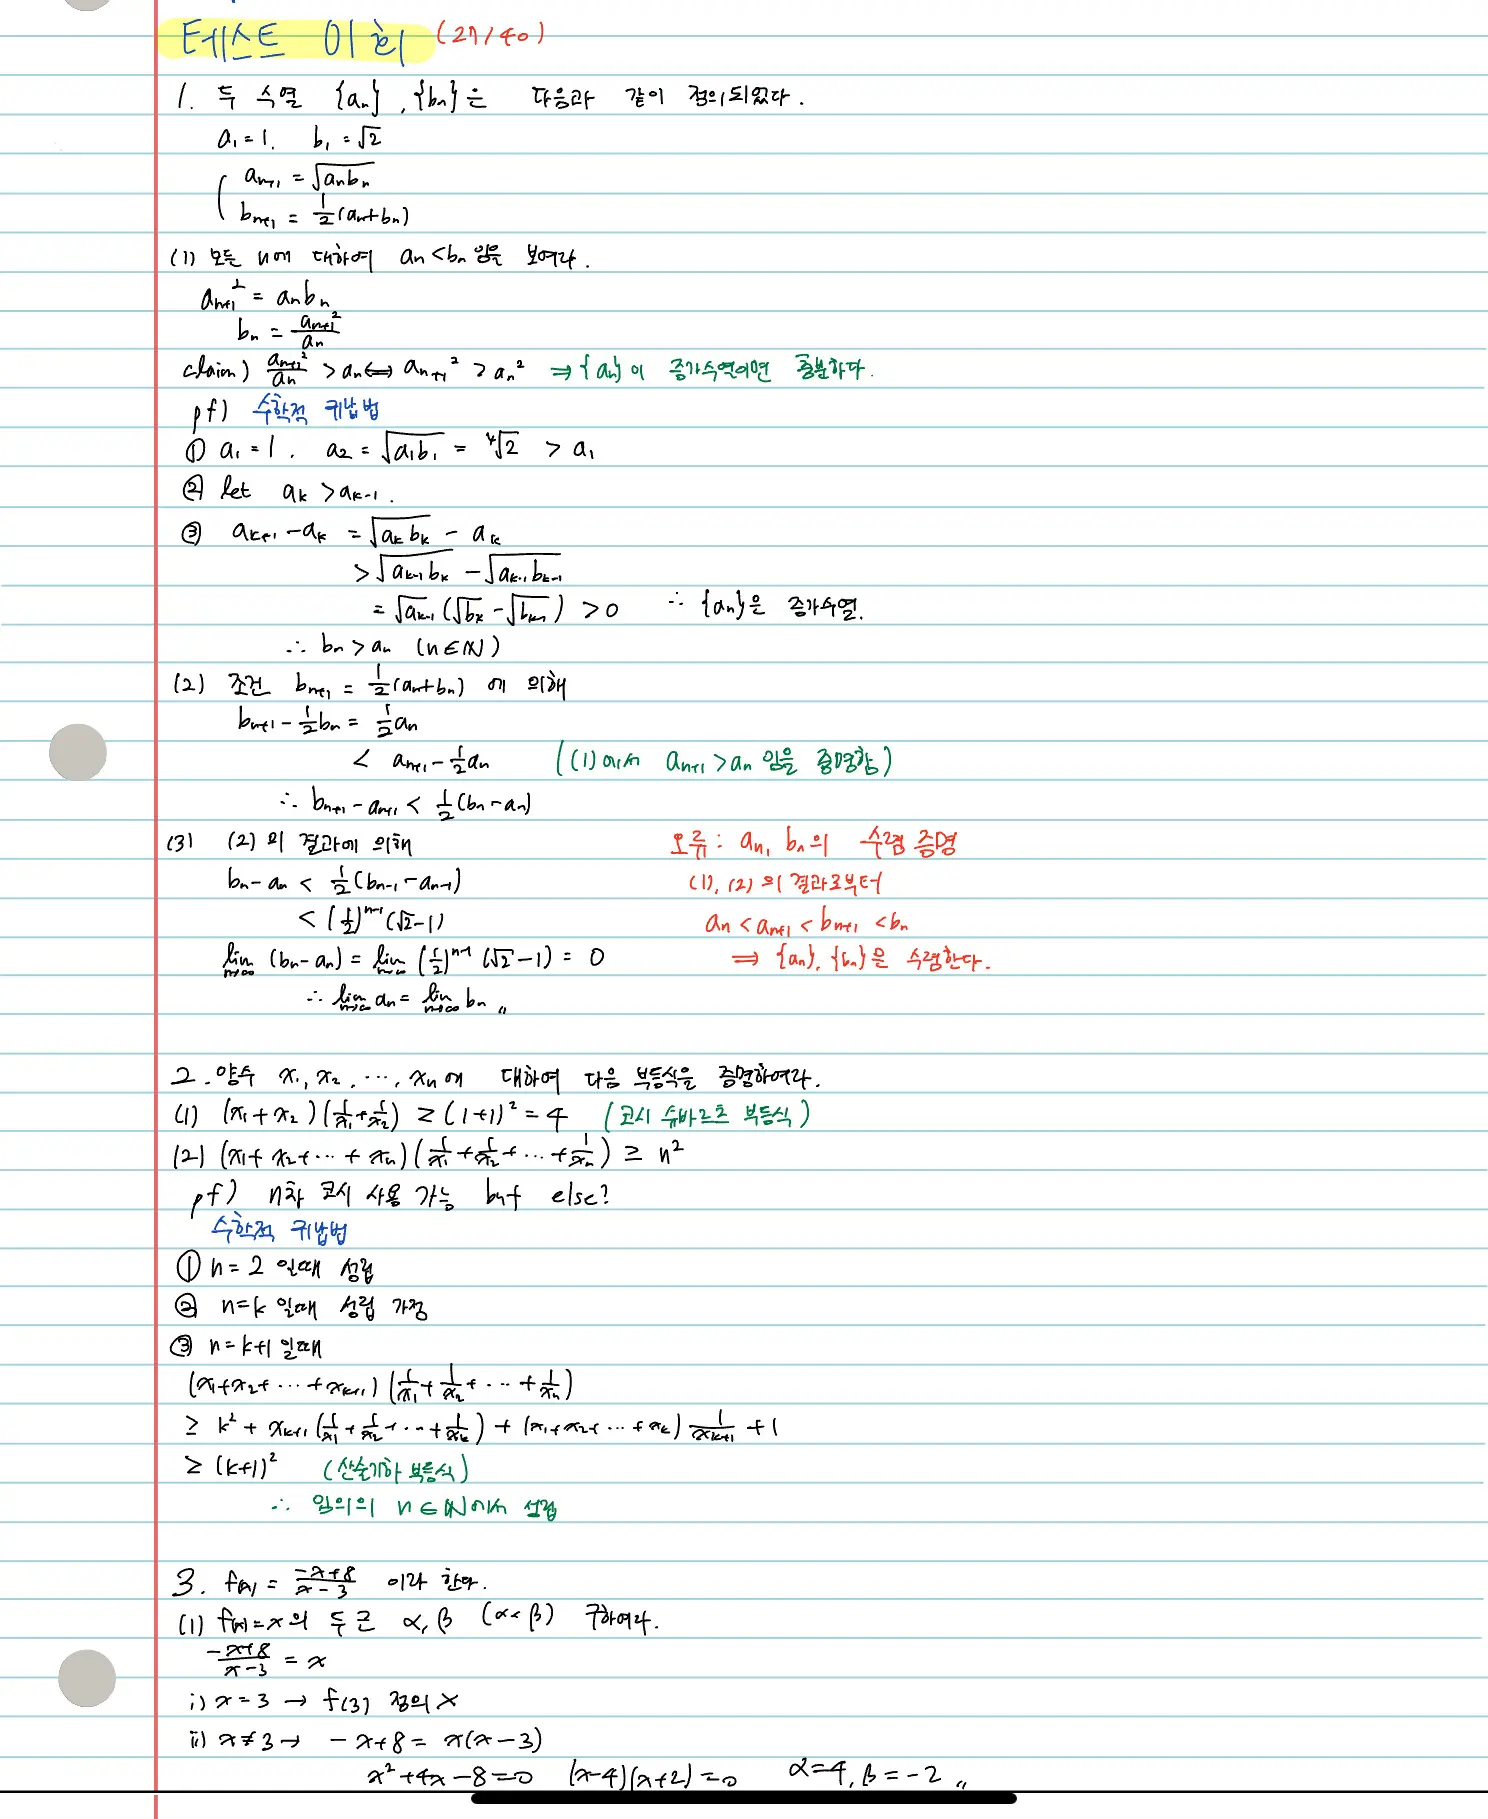 테스트 01회 (27/40)
1. 두 수열 {aₙ}, {bₙ}은 다음과 같이 정의되었다.
a₁=1. b₁=√2
aₙ₊₁ = √(aₙbₙ)
bₙ₊₁ = 1/2(aₙ+bₙ)
(1) 모든 n에 대하여 aₙ<bₙ 임을 보여라.
aₙ₊₁² = aₙbₙ
bₙ = aₙ₊₁²/aₙ
claim) aₙ₊₁²/aₙ > aₙ ⟺ aₙ₊₁² > aₙ² ⇒ {aₙ}이 증가수열이면 충분하다.
pf) 수학적 귀납법
① a₁=1. a₂ = √(a₁b₁) = ⁴√2 > a₁
② let aₖ > aₖ₋₁.
③ aₖ₊₁ - aₖ = √(aₖbₖ) - aₖ
> √(aₖ₋₁bₖ) - √(aₖ₋₁bₖ₋₁)
= √aₖ₋₁ (√bₖ - √bₖ₋₁) > 0 ∴ {aₙ}은 증가수열.
∴ bₙ > aₙ (n∈ℕ)
(2) 조건 bₙ₊₁ = 1/2(aₙ+bₙ) 에 의해
bₙ₊₁ - 1/2bₙ = 1/2aₙ
< aₙ₊₁ - 1/2aₙ ((1)에서 aₙ₊₁>aₙ 임을 증명함)
∴ bₙ₊₁ - aₙ₊₁ < 1/2(bₙ-aₙ)
(3) (2)의 결과에 의해 오류: aₙ, bₙ의 수렴 증명
bₙ-aₙ < 1/2(bₙ₋₁-aₙ₋₁) (1), (2)의 결과로부터
< (1/2)ⁿ⁻¹(√2-1) aₙ < aₙ₊₁ < bₙ₊₁ < bₙ
lim n→∞ (bₙ-aₙ) = lim n→∞ (1/2)ⁿ⁻¹(√2-1) = 0 ⇒ {aₙ}, {bₙ}은 수렴한다.
∴ lim n→∞ aₙ = lim n→∞ bₙ 〃
2. 양수 x₁, x₂, ⋯, xₙ에 대하여 다음 부등식을 증명하여라.
(1) (x₁+x₂)(1/x₁+1/x₂) ≥ (1+1)² = 4 (코시 슈바르츠 부등식)
(2) (x₁+x₂+⋯+xₙ)(1/x₁+1/x₂+⋯+1/xₙ) ≥ n²
pf) n차 코시 사용 가능 but else?
수학적 귀납법
① n=2 일때 성립
② n=k 일때 성립 가정
③ n=k+1 일때
(x₁+x₂+⋯+xₖ₊₁)(1/x₁+1/x₂+⋯+1/xₙ)
≥ k² + xₖ₊₁(1/x₁+1/x₂+⋯+1/xₖ) + (x₁+x₂+⋯+xₖ)1/xₖ₊₁ + 1
≥ (k+1)² (산술기하 부등식)
∴ 임의의 n∈ℕ에서 성립
3. f(x) = (-x+8)/(x-3) 이라 한다.
(1) f(x)=x의 두 근 α, β (α<β) 구하여라.
(-x+8)/(x-3) = x
i) x=3 → f(3) 정의 X
ii) x≠3 → -x+8 = x(x-3)
x²+4x-8=0 (x-4)(x+2)=0 α=4, β=-2 〃